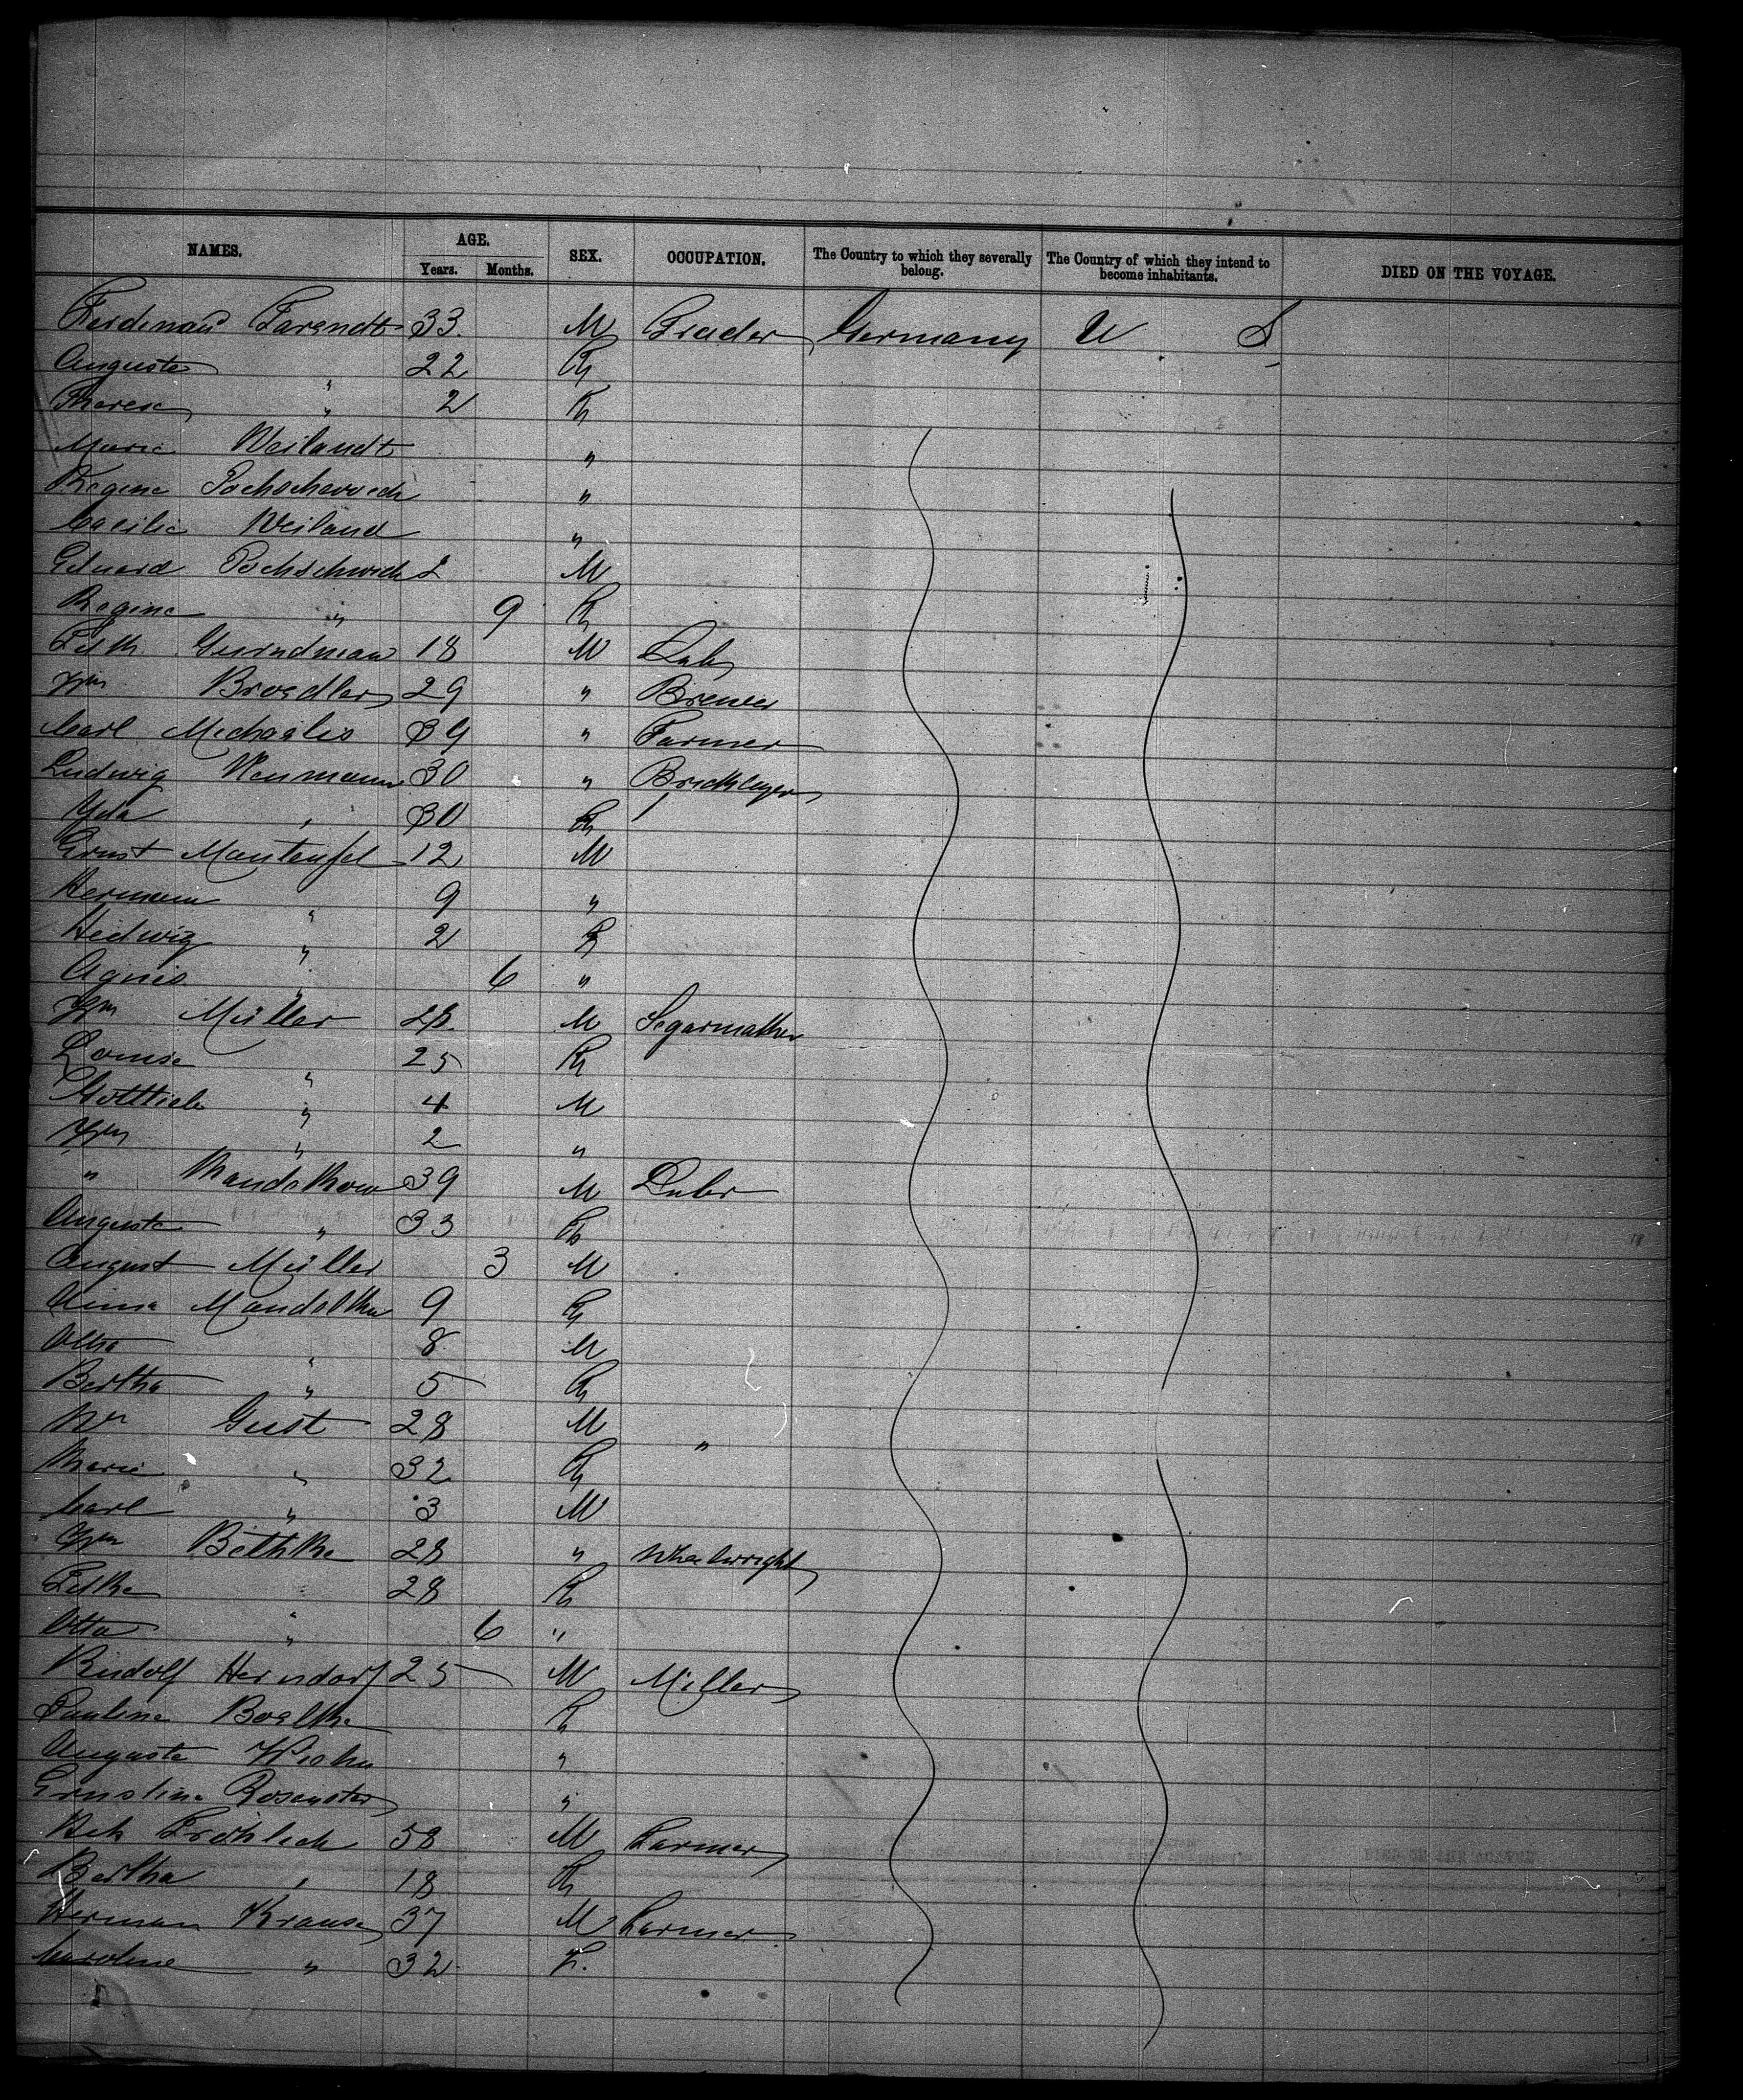 NAMES. AGE. Years. Months. SEX. OCCUPATION. The Country to which they severally belong. The Country of which they intend to become inhabitants. DIED ON THE VOYAGE.
Ferdinand 33 M Trader Germany U S
Auguste " 22 F
Therese " 2 F
Marie Weilandt "
Regine "
Cacilie Weiland "
Eduard M
Regine " 9 F
18 M
Wm Broedler 29 " Brewer
Carl Michaelis 39 " Farmer
Ludwig Neumann 30 " Bricklayer
Ida " 30 F
Ernst Manteufel 12 M
Hermann " 9 "
Hedwig " 2 F
Agnes " 6 "
Wm Müller 28 M Segarmaker
Louise " 25 F
Gottlieb " 4 M
Wm " 2 "
" 39 M
Auguste " 33 F
August Müller 3 M
Anna 9 F
Otto " 8 M
Bertha " 5 F
Wm Gust 28 M "
Marie " 32 F
Carl " 3 M
Wm Bethke 28 " Wheelwright
28 F
Otto " 6 "
Rudolf Herndorf 25 M Miller
Pauline F
Auguste "
Ernstine "
Fröhlich 58 M Farmer
Bertha " 18 F
Herman Krause 37 M Farmer
Caroline " 32 F.